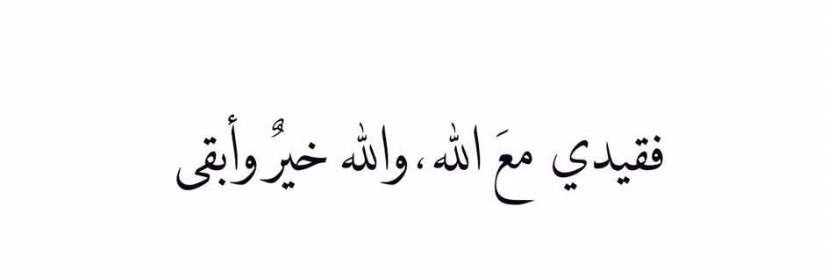 فقيدي معَ الله، والله خيرٌ وأبقى